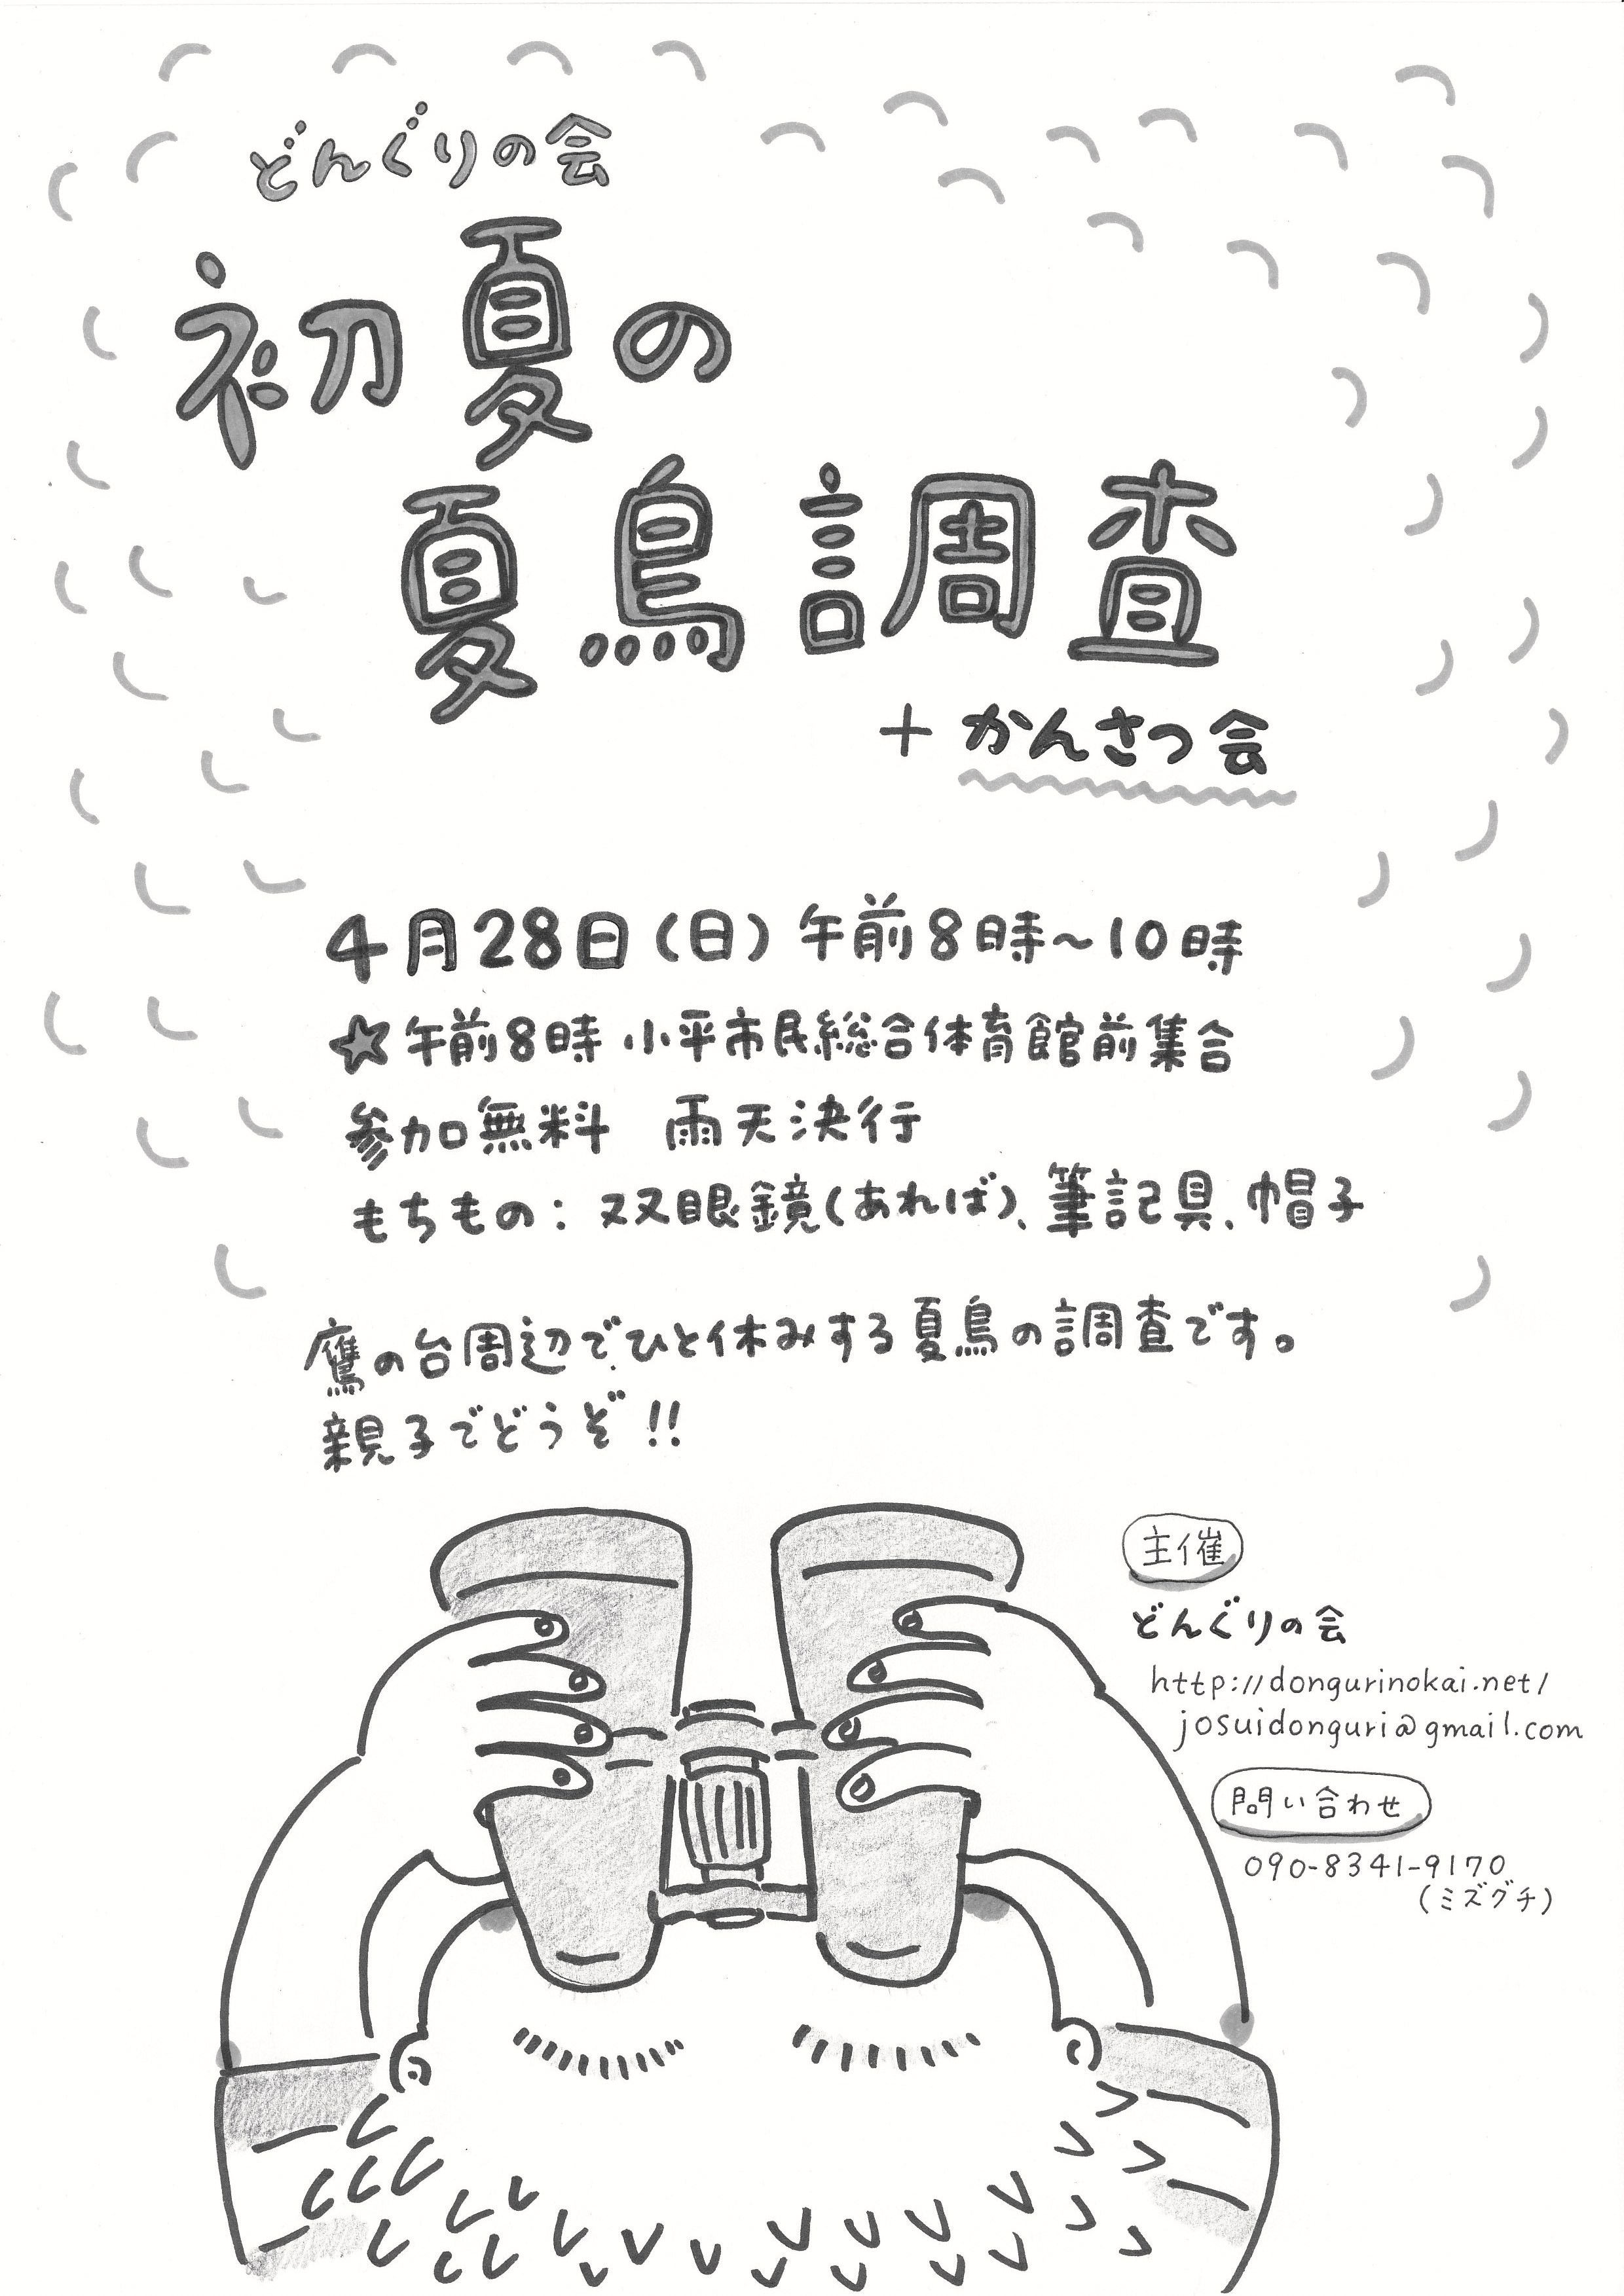 どんぐりの会
初夏の
夏鳥調査
+ かんさつ会
4月28日(日) 午前8時~10時
☆午前8時 小平市民総合体育館前集合
参加無料 雨天決行
もちもの: 双眼鏡(あれば)、筆記具、帽子
鷹の台周辺でひと休みする夏鳥の調査です。
親子でどうぞ!!
主催
どんぐりの会
http://dongurinokai.net/
josuidonguri@gmail.com
問い合わせ
090-8341-9170
(ミズグチ)